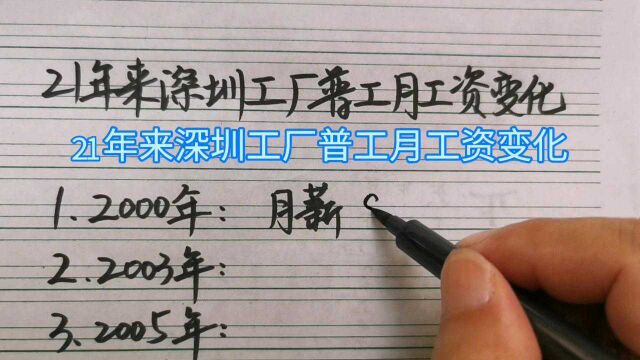 21年来深圳工厂普工月工资变化
21年来深圳工厂普工月工资变化
1.2000年：月薪
2.2003年：
3.2005年：